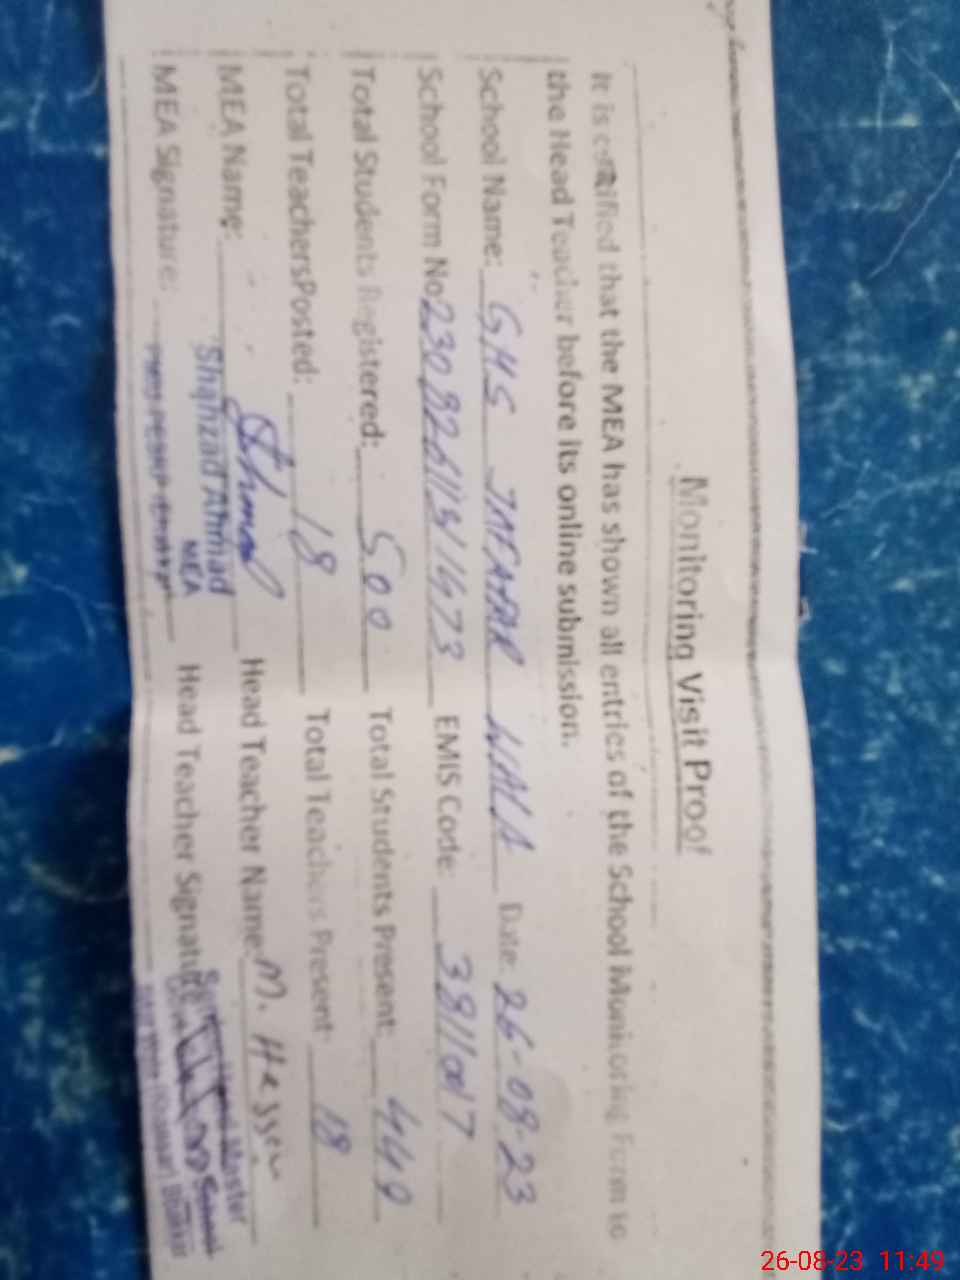 Monitoring Visit Proof
It is certified that the MEA has shown all entries of the School Monitoring Form to
the Head Teacher before its online submission.
School Name: GHS JAFAR WALA Date: 26-08-23
School Form No: EMIS Code:
Total Students Registered: 500 Total Students Present: 449
Total TeachersPosted: 18 Total Teachers Present: 18
MEA Name: Head Teacher Name: M.
Shahzad Ahmad
MEA
MEA Signature: Head Teacher Signature:
Master
School
26-08-23 11:49